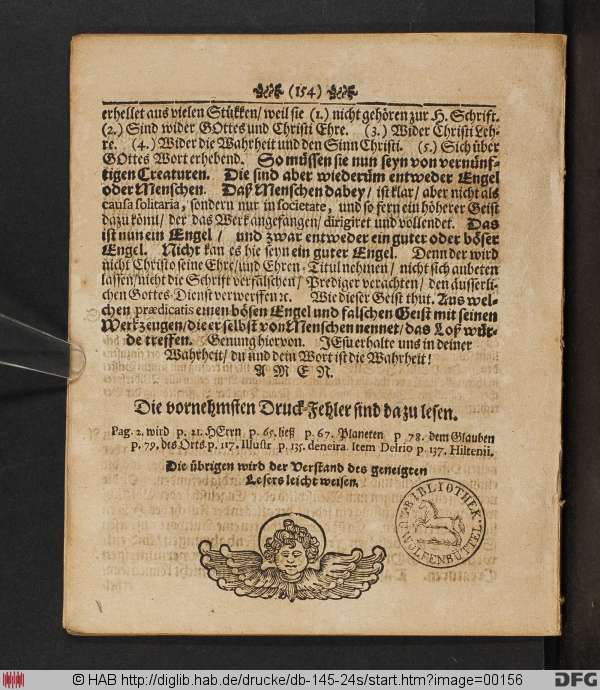 (154)
erhellet aus vielen Stükken/ weil sie (1.) nicht gehören zur H. Schrift.
(2.) Sind wider GOttes und Christi Ehre. (3.) Wider Christi Leh-
re. (4.) Wider die Wahrheit und den Sinn Christi. (5.) Sich über
GOttes Wort erhebend. So müssen sie nun seyn von vernünf-
tigen Creaturen. Die sind aber wiederüm entweder Engel
oder Menschen. Daß Menschen dabey/ ist klar/ aber nicht als
causa solitaria, sondern nur in societate, und so fern ein höherer Geist
dazu kömt/ der das Werk angefangen/ dirigiret und vollendet. Das
ist nun ein Engel/ und zwar entweder ein guter oder böser
Engel. Nicht kan es hie seyn ein guter Engel. Denn der wird
nicht Christo seine Ehre/ und Ehren-Titul nehmen/ nicht sich anbeten
lassen/ nicht die Schrift verfälschen/ Prediger verachten/ den äusserli-
chen Gottes-Dienst verwerffen ꝛc. Wie dieser Geist thut. Aus wel-
chen prædicatis einen bösen Engel und falschen Geist mit seinen
Werkzeugen/ die er selbst von Menschen nennet/ das Loß wür-
de treffen. Genung hiervon. JEsu erhalte uns in deiner
Wahrheit/ du und dein Wort ist die Wahrheit!
AMEN.
Die vornehmsten Druck-Fehler sind da zu lesen.
Pag. 2. wird p. 21. HErrn p. 65. ließ p. 67. Planeten p 78. dem Glauben
p. 79. des Orts. p. 117. Illustr p. 135. deneira. Item Delrio p 137. Hiltenii.
Die übrigen wird der Verstand des geneigten
Lesers leicht weisen.
BIBLIOTHEK
WOLFENBÜTTEL
© HAB http://diglib.hab.de/drucke/db-145-24s/start.htm?image=00156
DFG